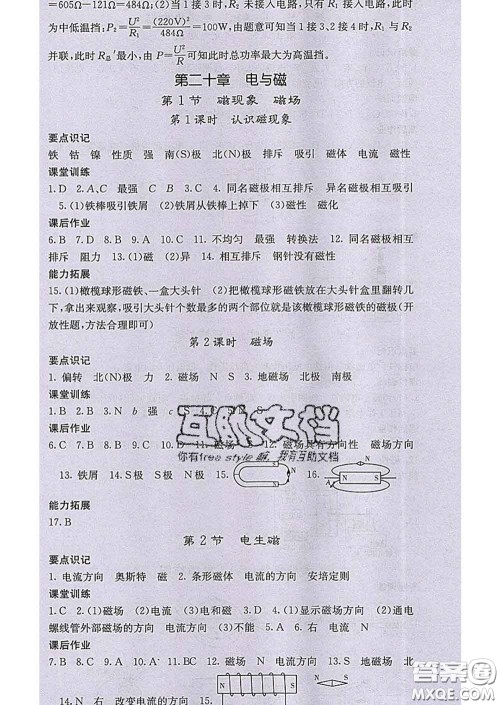 =605Ω-121Ω=484Ω;(2)当1接3时,R2未接入电路,只有R1接入电路,此时
为中低温挡;P2=U²/R1=(220V)²/484Ω=100W,由题意可知当1接4,2接3时,R1与R2
并联,此时R总′最小,由P=U²/R可知此时总功率最大为高温挡。
第二十章 电与磁
第1节 磁现象 磁场
第1课时 认识磁现象
要点识记
铁 钴 镍 性质 强 南(S)极 北(N)极 排斥 吸引 磁体 电流 磁性
课堂训练
1.D 2.A、C 最强 C B 3.C 4.同名磁极相互排斥 异名磁极相互吸引
5.(1)铁棒吸引铁屑 (2)铁屑从铁棒上掉下 (3)磁性 磁化
课后作业
6.B 7.D 8.B 9.A 10.C 11.不均匀 最强 转换法 12.同名磁极相互
排斥 阻力 13.(1)磁 (2)异 14.相互排斥 钢针没有磁性
能力拓展
15.(1)橄榄球形磁铁、一盒大头针 (2)把橄榄球形磁铁放在大头针盒里翻转几
下,拿出来观察,吸引大头针个数最多的两个部位就是该橄榄球形磁铁的磁极(开
放性题,方法合理即可)
第2课时 磁场
要点识记
1.偏转 北(N)极 力 2.磁场 N S 3.地磁场 北极 南极
课堂训练
1.B 2.B 3.N b 强 c S
课后作业
6.C 7.B 8.D 9.A 10.D 11.磁场 12.磁场具有方向性 磁场方向
13.铁屑 14.S极 S极 N极 15. N S 16. N S
互动文档
你有free style嘛,我有互助文档
能力拓展
17.B
第2节 电生磁
要点识记
1.电流方向 奥斯特 磁 2.条形磁体 电流的方向 安培定则
课堂训练
1.C 2.(1)磁场 (2)电流 3.(1)电和磁 (2)D 4.(1)显示磁场方向 (2)通电
螺线管外部磁场的方向 电流方向 (3)不能 5.A 6.右 电流 N
课后作业
7.B 8.C 9.A 10.B 11.DBC 12.N S S 13.磁场 地磁场 北
14.N 右 改变电流的方向 15. N S N S
答案圈
MXQE.COM